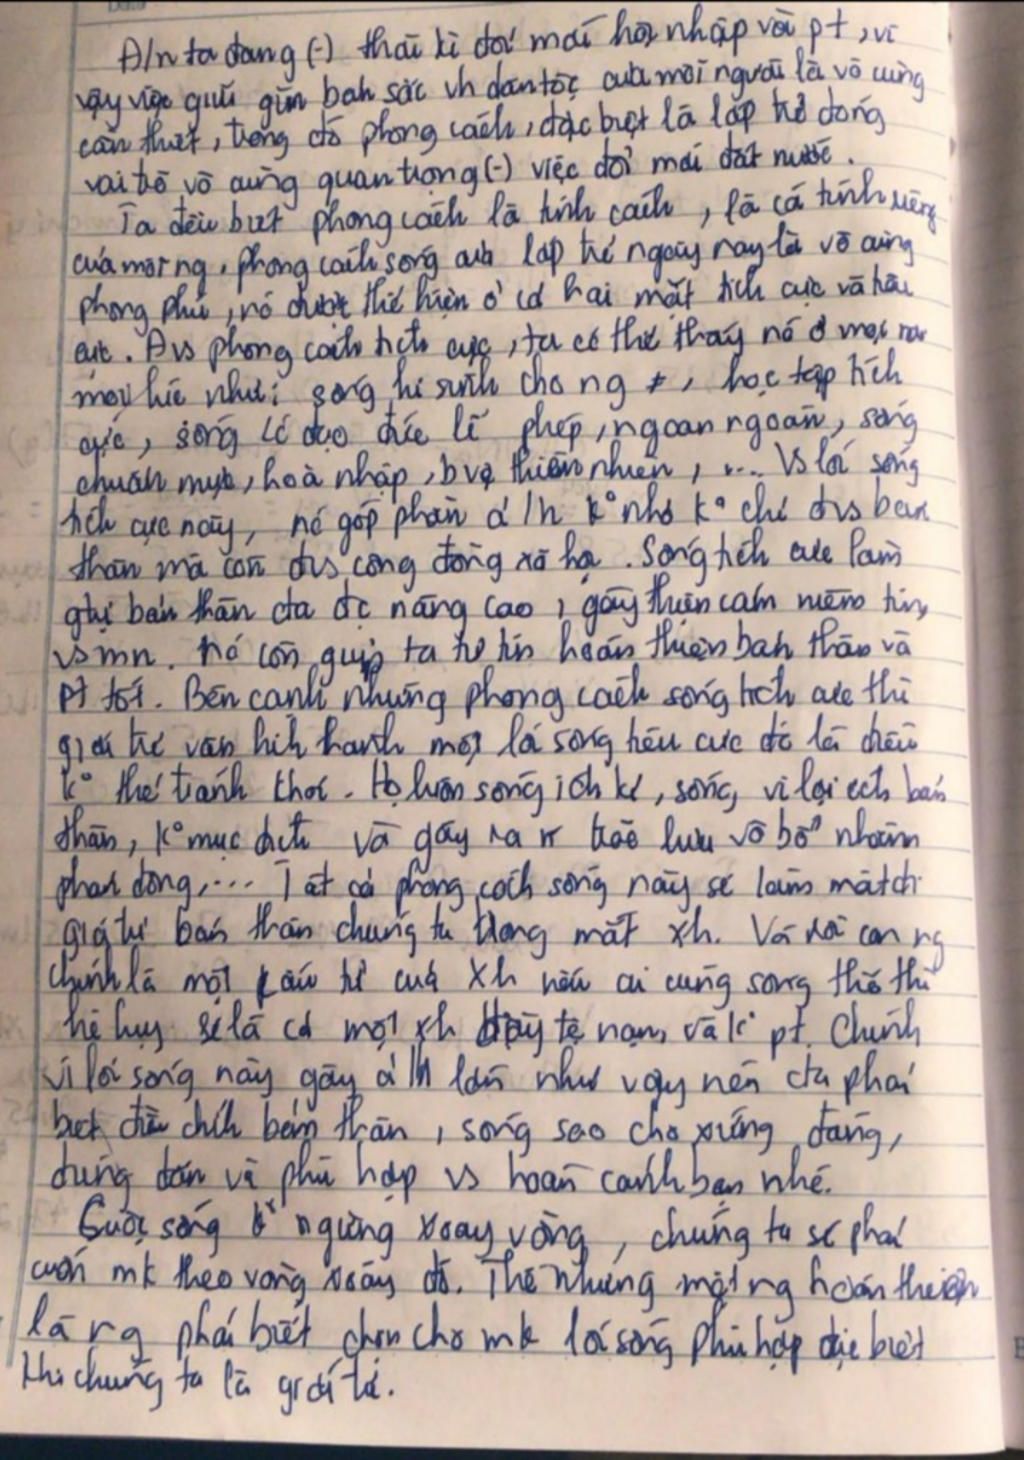 Đ/n ta đang (-) thời kì đổi mới hội nhập và pt, vì
vậy việc giữ gìn bản sắc vh dân tộc của mỗi người là vô cùng
cần thiết, trong đó phong cách, đặc biệt là lớp trẻ đóng
vai trò vô cùng quan trọng (-) việc đổi mới đất nước.
Ta đều biết phong cách là tính cách, là cá tính riêng
của mỗi ng, phong cách sống của lớp trẻ ngày nay là vô cùng
phong phú, nó được thể hiện ở cả hai mặt tích cực và tiêu
cực. Đvs phong cách tích cực, ta có thể thấy nó ở mọi nơi
mọi lúc như: sống hi sinh cho ng ≠, học tập tích
cực, sống có đạo đức lễ phép, ngoan ngoãn, sống
chuẩn mực, hoà nhập, bvệ thiên nhiên, ... Vs lối sống
tích cực này, nó góp phần ả/h k° nhỏ k° chỉ đvs bản
thân mà còn đvs cộng đồng xã hội. Sống tích cực làm
gtrị bản thân cta đc nâng cao, gây thiện cảm niềm tin,
vs mn. nó còn giúp ta tự tin hoàn thiện bản thân và
pt tốt. Bên cạnh những phong cách sống tích cực thì
giới trẻ vẫn hình thành một lối sống tiêu cực đó là điều
k° thể tránh khỏi. Họ luôn sống ích kỉ, sống vì lợi ích bản
thân, k° mục đích và gây ra trào lưu vô bổ nhằm
phản động,... Tất cả phong cách sống này sẽ làm mất đi
giá trị bản thân chúng ta trong mắt xh. Và rồi con ng
chính là một cấu tử của xh nếu ai cũng sống thế thì
hệ luỵ sẽ là cả một xh đầy tệ nạn và k° pt. Chính
vì lối sống này gây ả/h lớn như vậy nên cta phải
biết điều chỉnh bản thân, sống sao cho xứng đáng,
đúng đắn và phù hợp vs hoàn cảnh bạn nhé.
Cuộc sống k° ngừng xoay vòng, chúng ta sẽ phải
cuốn mk theo vòng xoáy đó. Thế nhưng một ng hoàn thiện
là ng phải biết chọn cho mk lối sống phù hợp đặc biệt
khi chúng ta là giới trẻ.